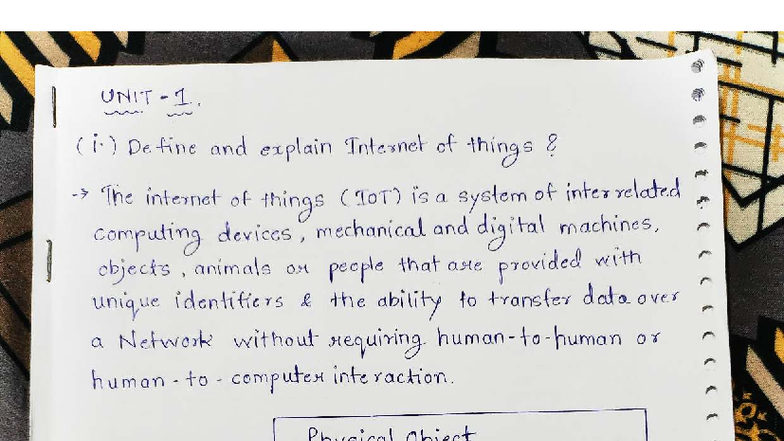 UNIT - 1.
(i.) Define and explain Internet of things ?
-> The internet of things (IOT) is a system of inter related
computing devices, mechanical and digital machines,
objects, animals or people that are provided with
unique identifiers & the ability to transfer data over
a Network without requiring human-to-human or
human-to-computer interaction.
Physical Object